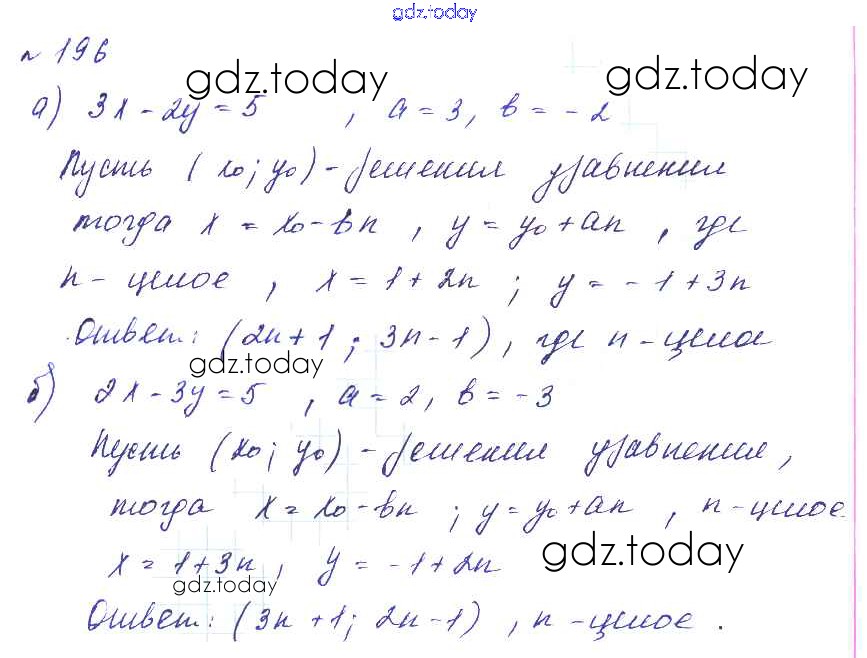 gdz.today
n 196
gdz.today gdz.today
а) 3x - 2y = 5 , a = 3, b = - 2
Пусть ( x₀; y₀ ) - решения уравнения
тогда x = x₀ - bn , y = y₀ + an , где
n - целое , x = 1 + 2n ; y = - 1 + 3n
Ответ: (2n + 1 ; 3n - 1) , где n - целое
gdz.today
б) 2x - 3y = 5 , a = 2, b = - 3
Пусть (x₀; y₀) - решения уравнения,
тогда x = x₀ - bn ; y = y₀ + an , n - целое
x = 1 + 3n , y = - 1 + 2n gdz.today
gdz.today
Ответ: (3n + 1; 2n - 1) , n - целое .